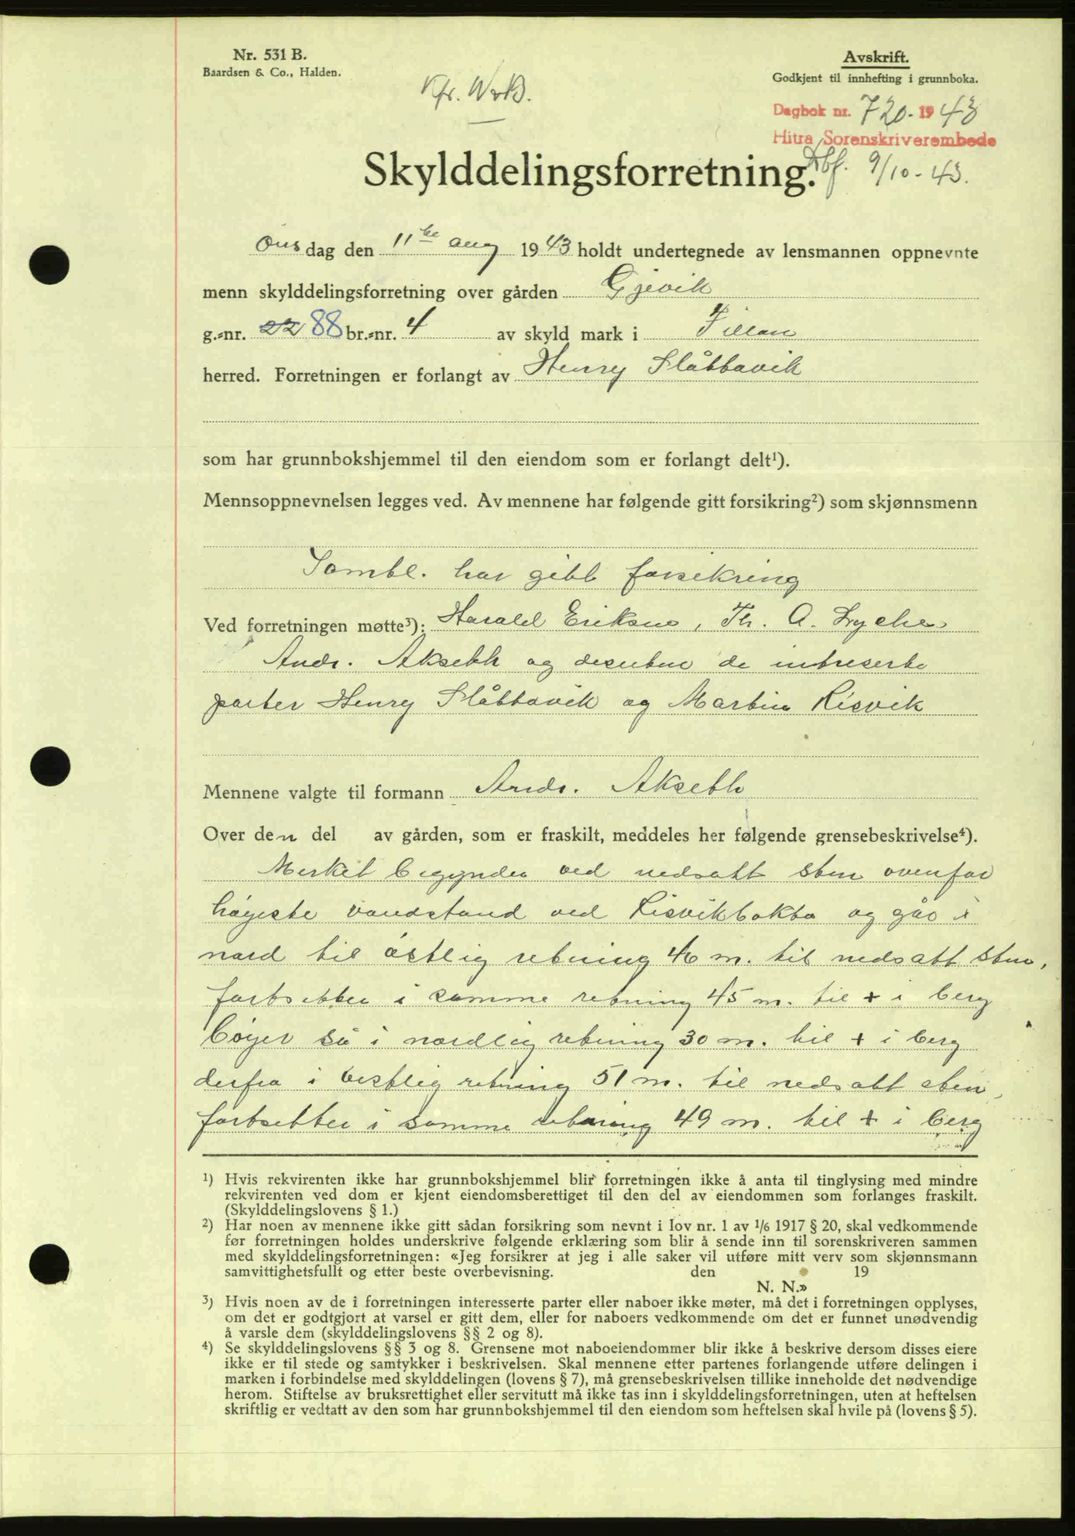 Nr. 531 B.
Baardsen & Co., Halden.
Kfr. W&B.
Avskrift.
Godkjent til innhefting i grunnboka.
Dagbok nr. 720 - 1943
Hitra Sorenskriverembede
Dbf. 9/10 - 43.
Skylddelingsforretning.
Onsdag den 11te aug 1943 holdt undertegnede av lensmannen oppnevnte
menn skylddelingsforretning over gården Gjevik
g.-nr. 22 88 br.-nr. 4 av skyld mark i Fillan
herred. Forretningen er forlangt av Henry Slåttavik
som har grunnbokshjemmel til den eiendom som er forlangt delt¹).
Mennsoppnevnelsen legges ved. Av mennene har følgende gitt forsikring²) som skjønnsmenn
Samtl. har gitt forsikring
Ved forretningen møtte³): Harald Eriksen, Th. A. Lyche
Andr. Aksetth og desuten de intreserte
parter Henry Slåttavik og Martin Risvik
Mennene valgte til formann Andr. Aksetth
Over den del av gården, som er fraskilt, meddeles her følgende grensebeskrivelse⁴).
Merket begynder ved nedsatt sten ovenfor
høyeste vandstand ved Risvikbukta og går i
nord til östlig retning 46 m. til nedsatt sten,
fortsetter i samme retning 45 m. til + i berg
böyer så i nordlig retning 30 m. til + i berg
derfra i vestlig retning 51 m. til nedsatt sten,
fortsetter i samme retning 49 m. til + i berg
¹) Hvis rekvirenten ikke har grunnbokshjemmel blir forretningen ikke å anta til tinglysing med mindre
rekvirenten ved dom er kjent eiendomsberettiget til den del av eiendommen som forlanges fraskilt.
(Skylddelingslovens § 1.)
²) Har noen av mennene ikke gitt sådan forsikring som nevnt i lov nr. 1 av 1/6 1917 § 20, skal vedkommende
før forretningen holdes underskrive følgende erklæring som blir å sende inn til sorenskriveren sammen
med skylddelingsforretningen: «Jeg forsikrer at jeg i alle saker vil utføre mitt verv som skjønnsmann
samvittighetsfullt og etter beste overbevisning. den 19
N. N.»
³) Hvis noen av de i forretningen interesserte parter eller naboer ikke møter, må det i forretningen opplyses,
om det er godtgjort at varsel er gitt dem, eller for naboers vedkommende om det er funnet unødvendig
å varsle dem (skylddelingslovens §§ 2 og 8).
⁴) Se skylddelingslovens §§ 3 og 8. Grensene mot naboeiendommer blir ikke å beskrive dersom disses eiere
ikke er til stede og samtykker i beskrivelsen. Skal mennene etter partenes forlangende utføre delingen i
marken i forbindelse med skylddelingen (lovens § 7), må grensebeskrivelsen tillike inneholde det nødvendige
herom. Stiftelse av bruksrettighet eller servitutt må ikke tas inn i skylddelingsforretningen, uten at heftelsen
skriftlig er vedtatt av den som har grunnbokshjemmel til den eiendom som heftelsen skal hvile på (lovens § 5).